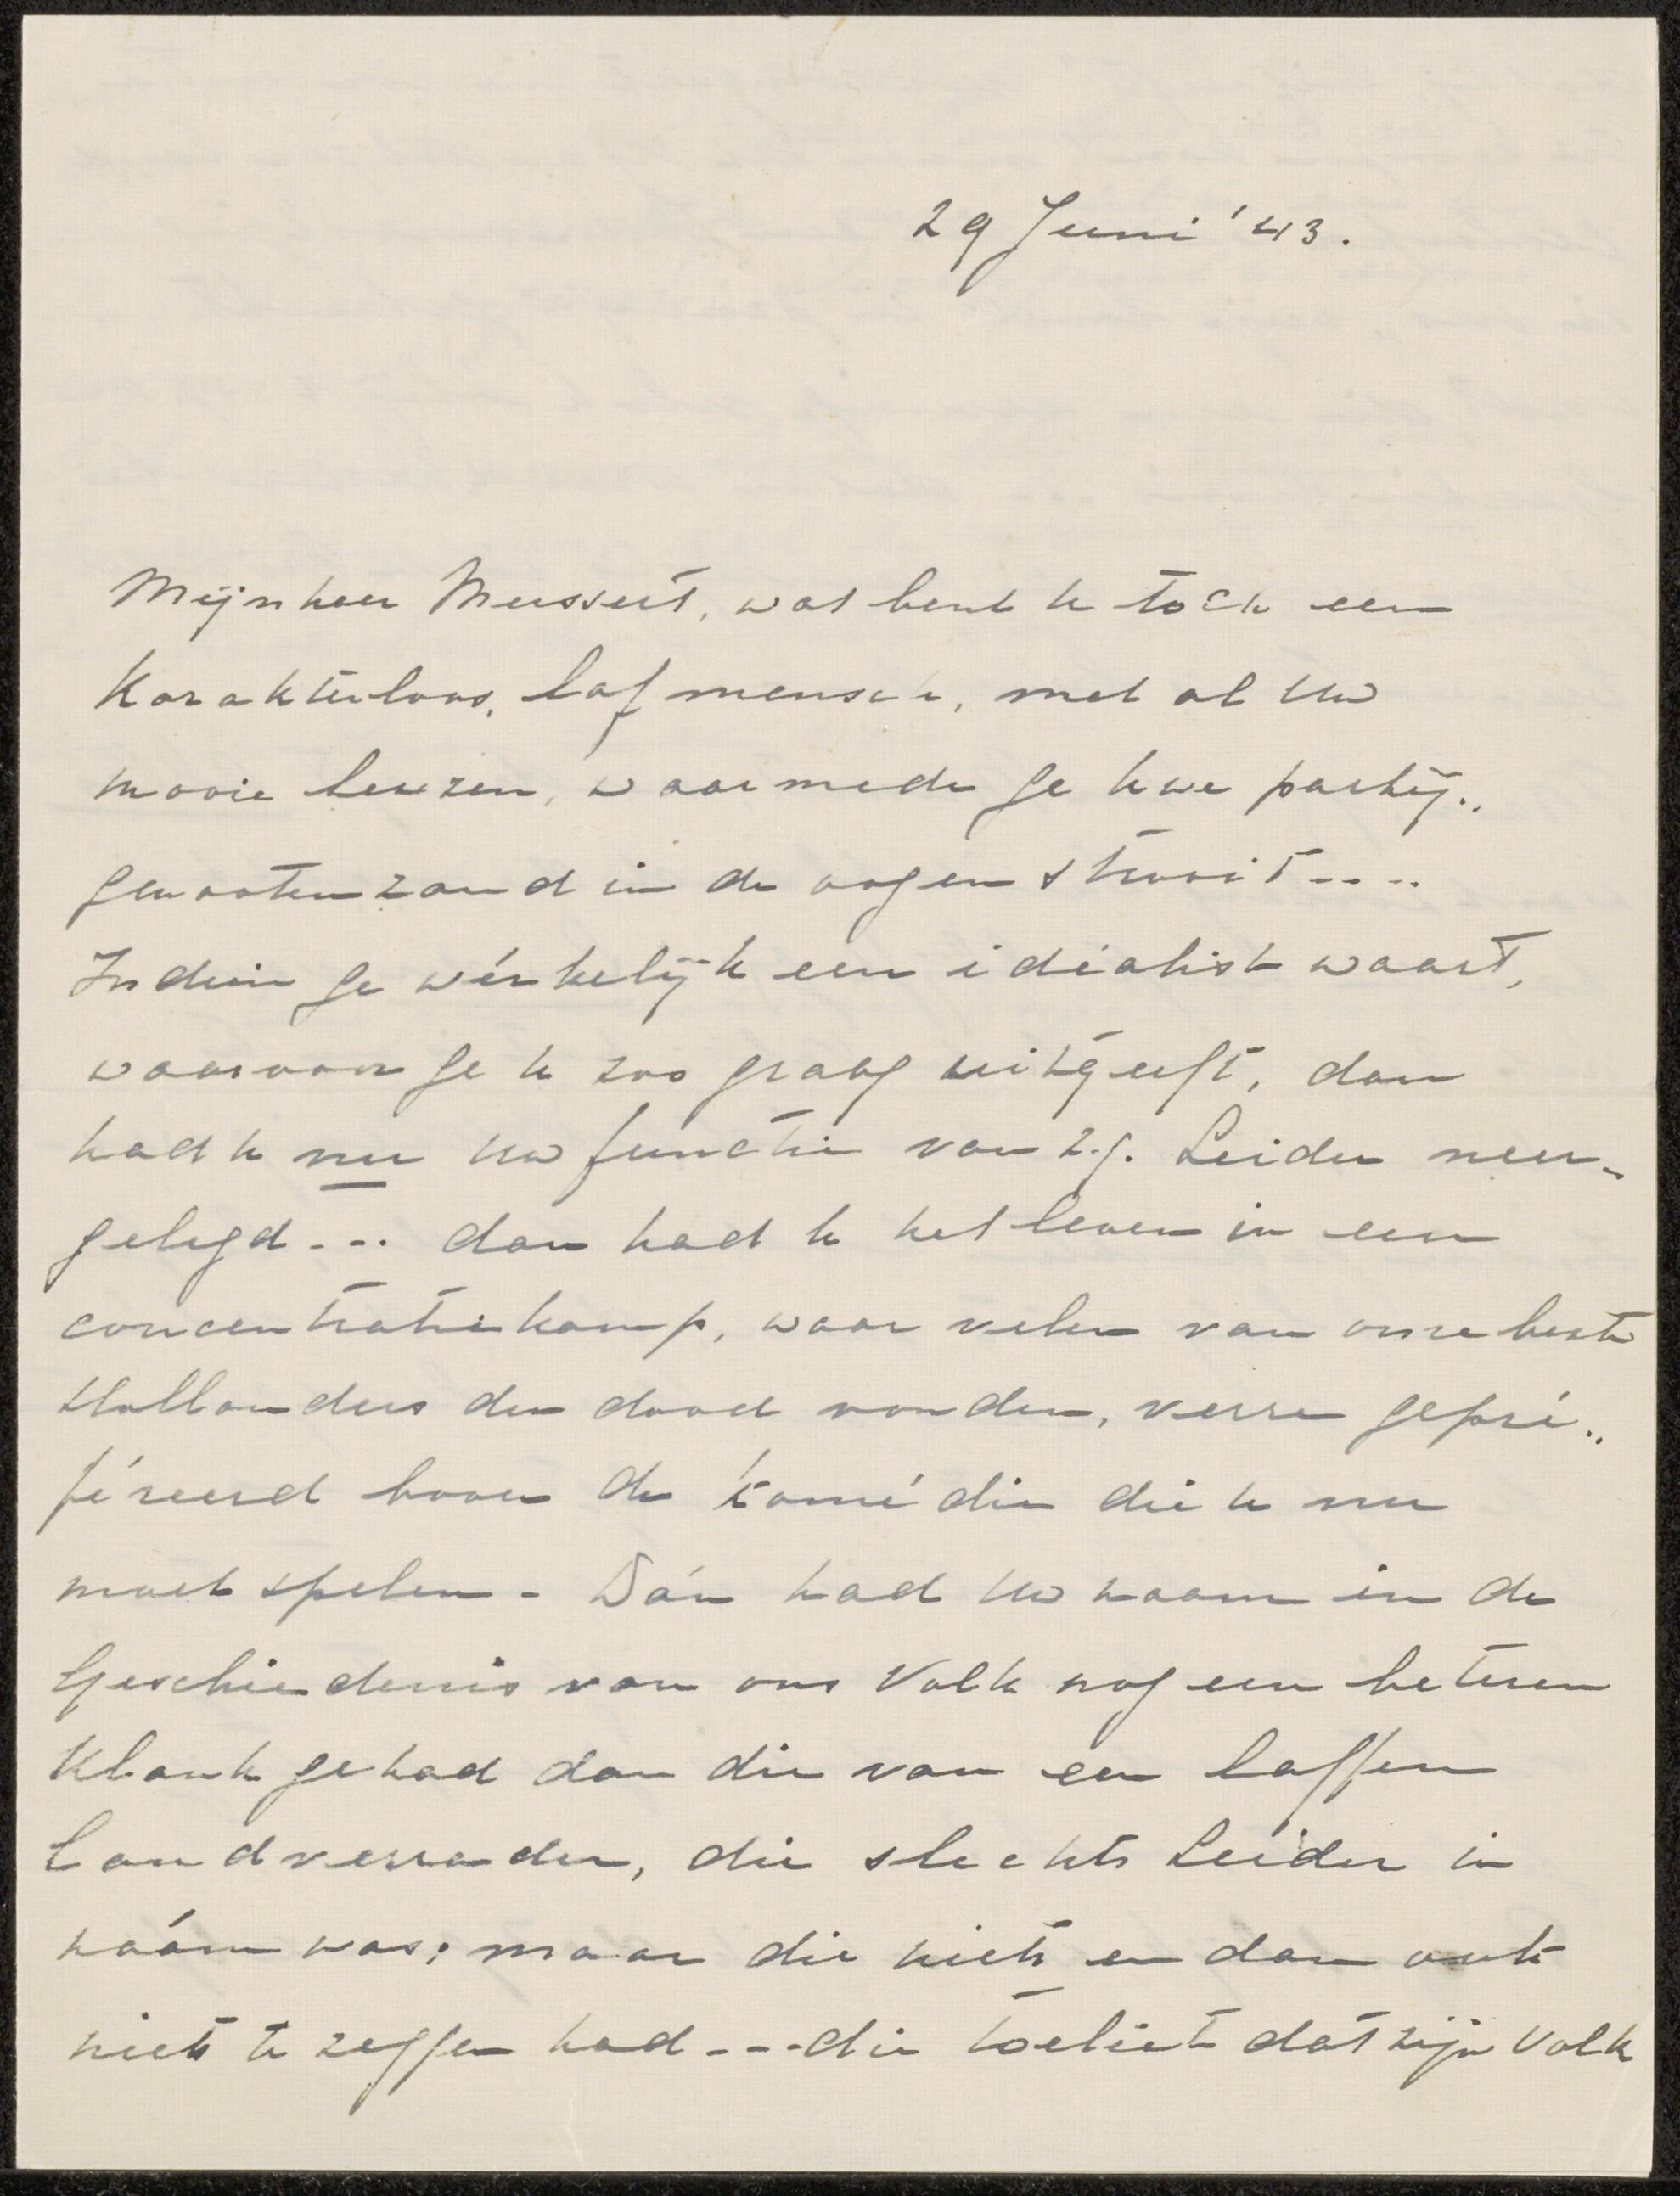 29 Juni '43.
Mijnheer Mussert, wat bent U toch een
karakterloos, laf mensch, met al Uw
mooie leuzen, waarmede ge Uwe partij„
genooten zand in de oogen strooit....
Indien ge wérkelijk een idéalist waart,
waarvoor ge U zoo graag uitgeeft, dan
had U nu Uw functie van z.g. Leider neer„
gelegd... dan had U het leven in een
concentratiekamp, waar velen van onze beste
Hollanders den dood vonden, verre gepré„
féreerd boven de komédie die U nu
moet spelen - Dán had Uw naam in de
Geschiedenis van ons Volk nog een beteren
klank gehad dan die van een laffen
landverrader, die slechts Leider in
náám was; maar die niets en dan ook
niets te zeggen had---die toeliet dat zijn Volk